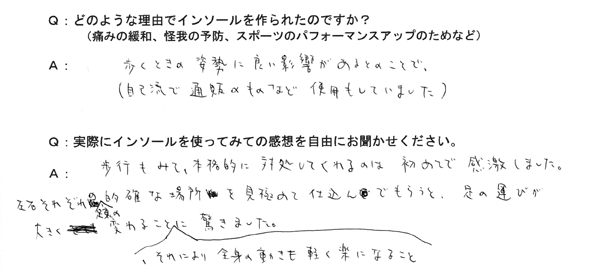 Q：どのような理由でインソールを作られたのですか？
（痛みの緩和、怪我の予防、スポーツのパフォーマンスアップのためなど）
A： 歩くときの姿勢に良い影響があるとのことで、
（自己流で通販のものなど使用もしていました）
Q：実際にインソールを使ってみての感想を自由にお聞かせください。
A： 歩行もみて、本格的に対処してくれるのは初めてで感激しました。
左右それぞれの的確な場所を見極めて仕込んでもらうと、足の運びが
大きく変わることに驚きました。
、それにより全身の動きも軽く楽になること